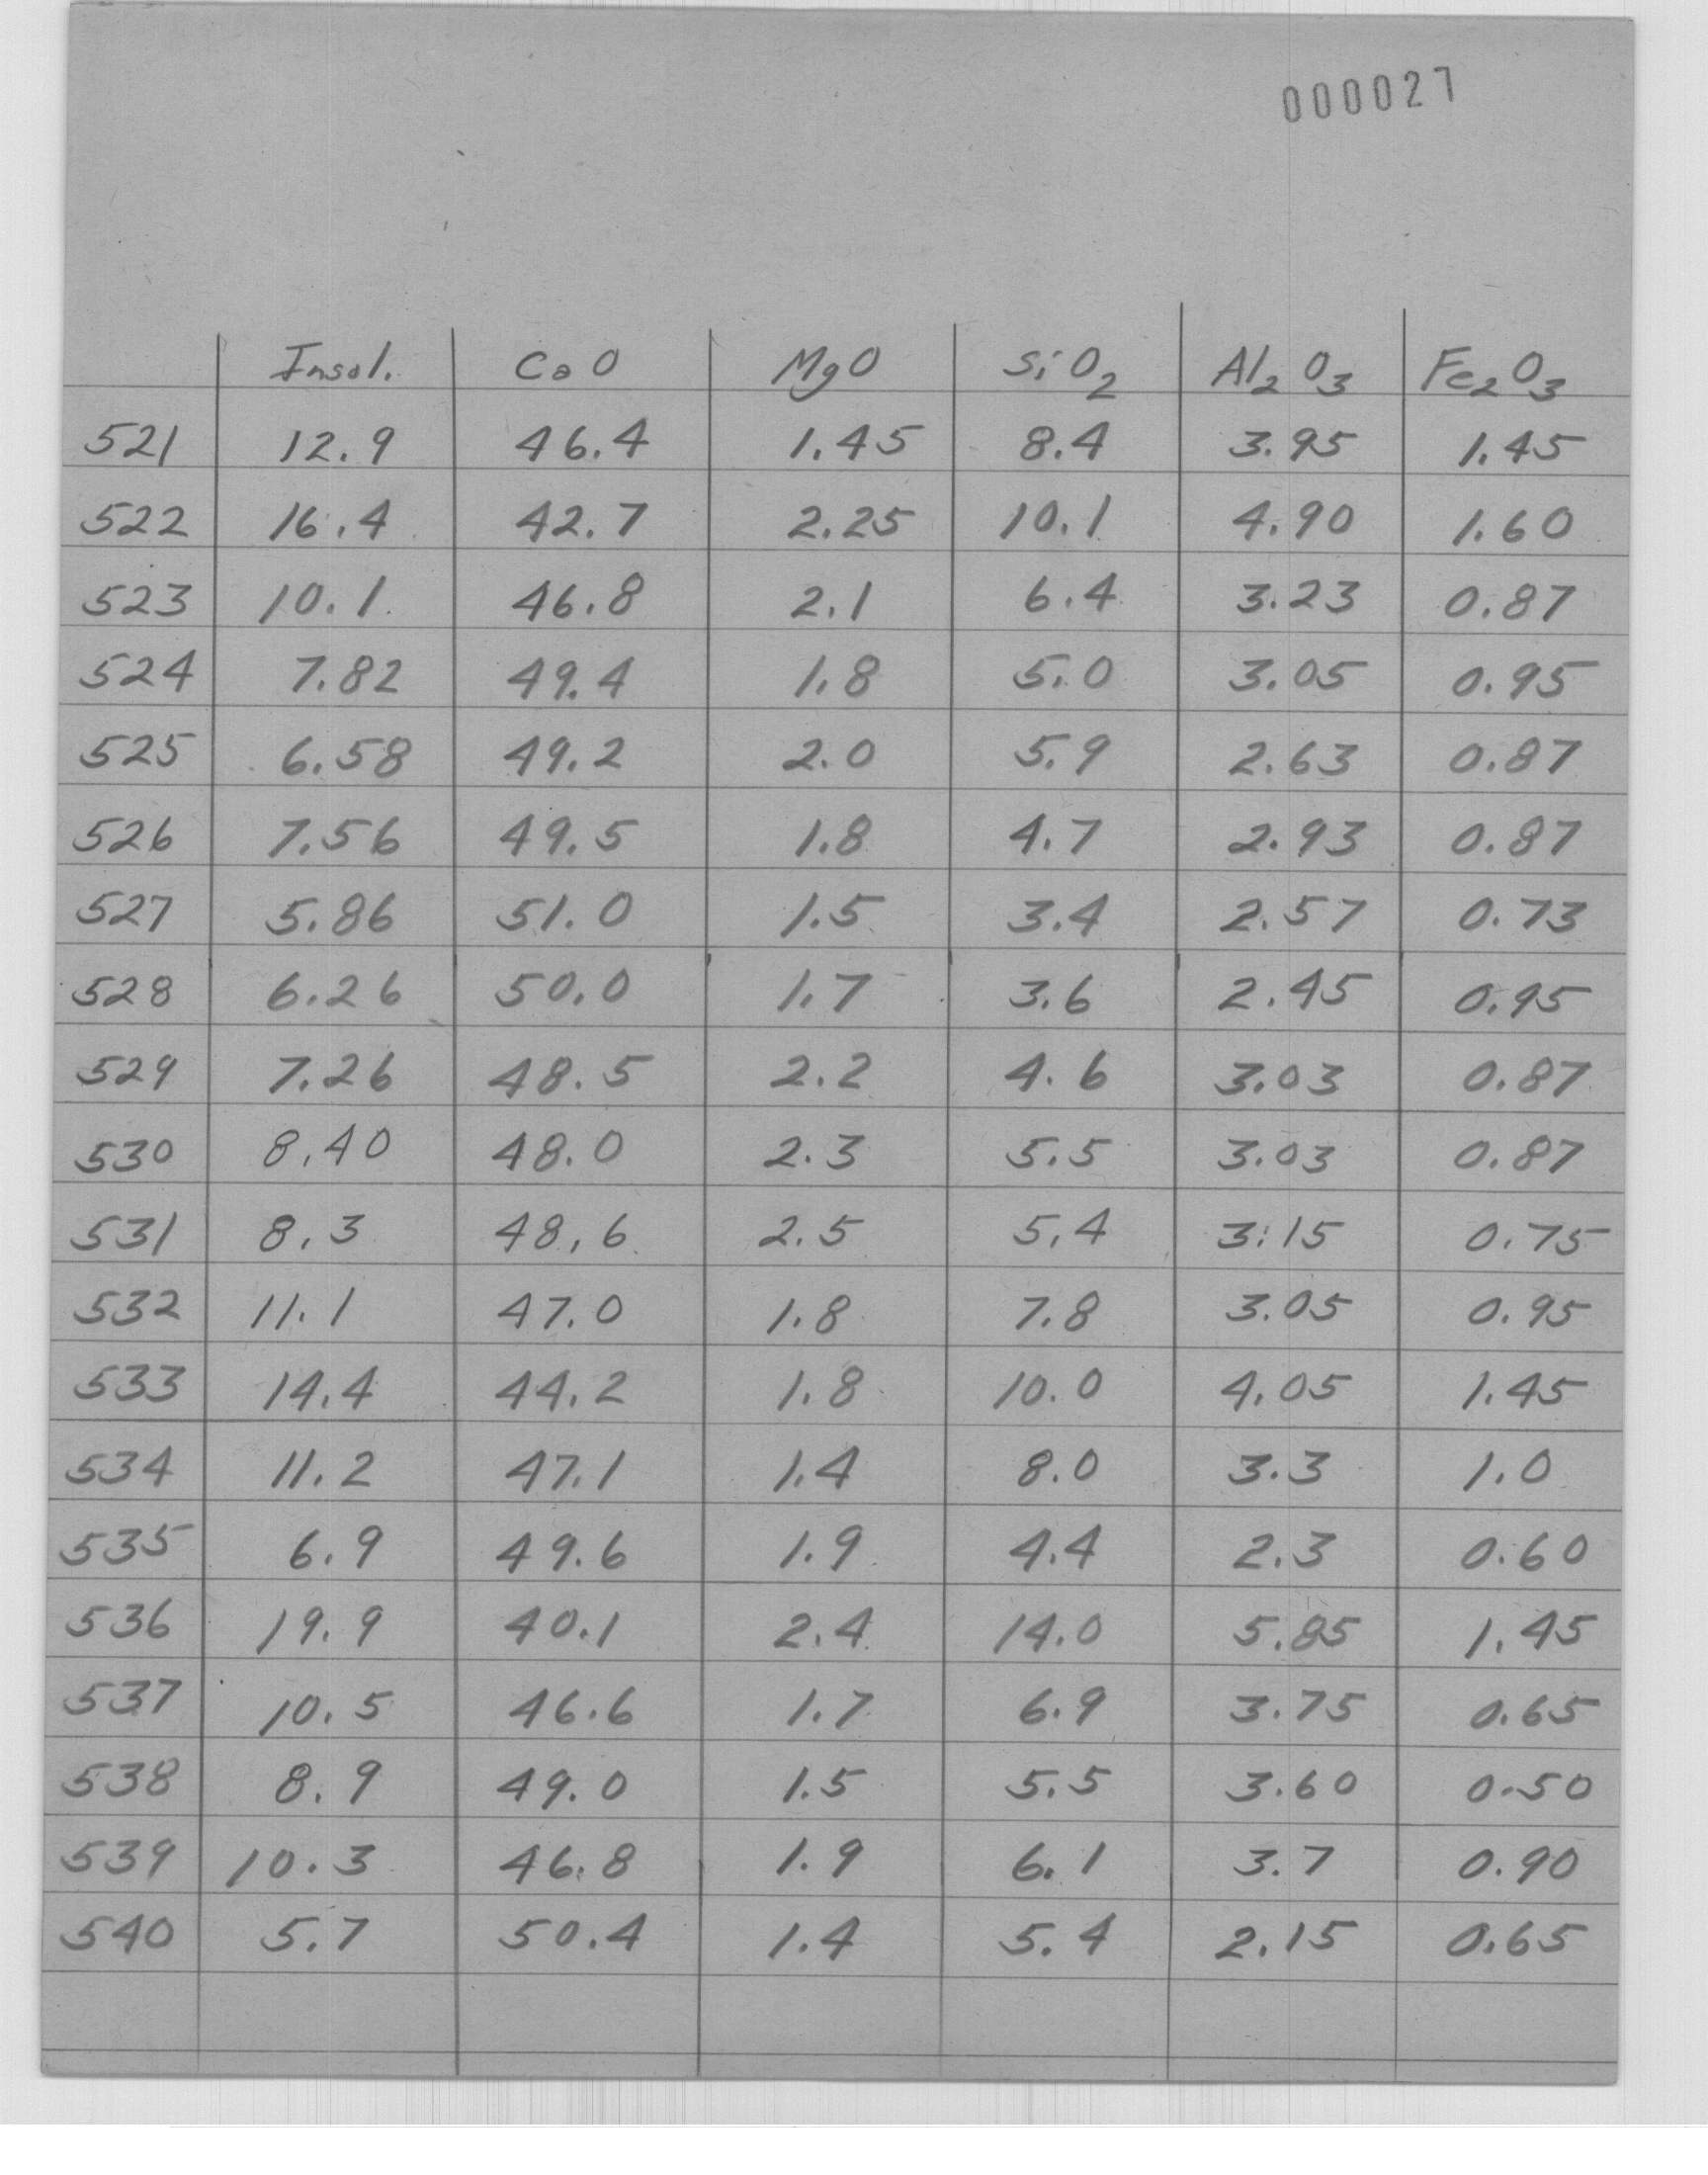 000027
Insol. CaO MgO SiO2 Al2O3 Fe2O3
521 12.9 46.4 1.45 8.4 3.95 1.45
522 16.4 42.7 2.25 10.1 4.90 1.60
523 10.1 46.8 2.1 6.4 3.23 0.87
524 7.82 49.4 1.8 5.0 3.05 0.95
525 6.58 49.2 2.0 5.9 2.63 0.87
526 7.56 49.5 1.8 4.7 2.93 0.87
527 5.86 51.0 1.5 3.4 2.57 0.73
528 6.26 50.0 1.7 3.6 2.45 0.95
529 7.26 48.5 2.2 4.6 3.03 0.87
530 8.40 48.0 2.3 5.5 3.03 0.87
531 8.3 48.6 2.5 5.4 3.15 0.75
532 11.1 47.0 1.8 7.8 3.05 0.95
533 14.4 44.2 1.8 10.0 4.05 1.45
534 11.2 47.1 1.4 8.0 3.3 1.0
535 6.9 49.6 1.9 4.4 2.3 0.60
536 19.9 40.1 2.4 14.0 5.85 1.45
537 10.5 46.6 1.7 6.9 3.75 0.65
538 8.9 49.0 1.5 5.5 3.60 0.50
539 10.3 46.8 1.9 6.1 3.7 0.90
540 5.7 50.4 1.4 5.4 2.15 0.65